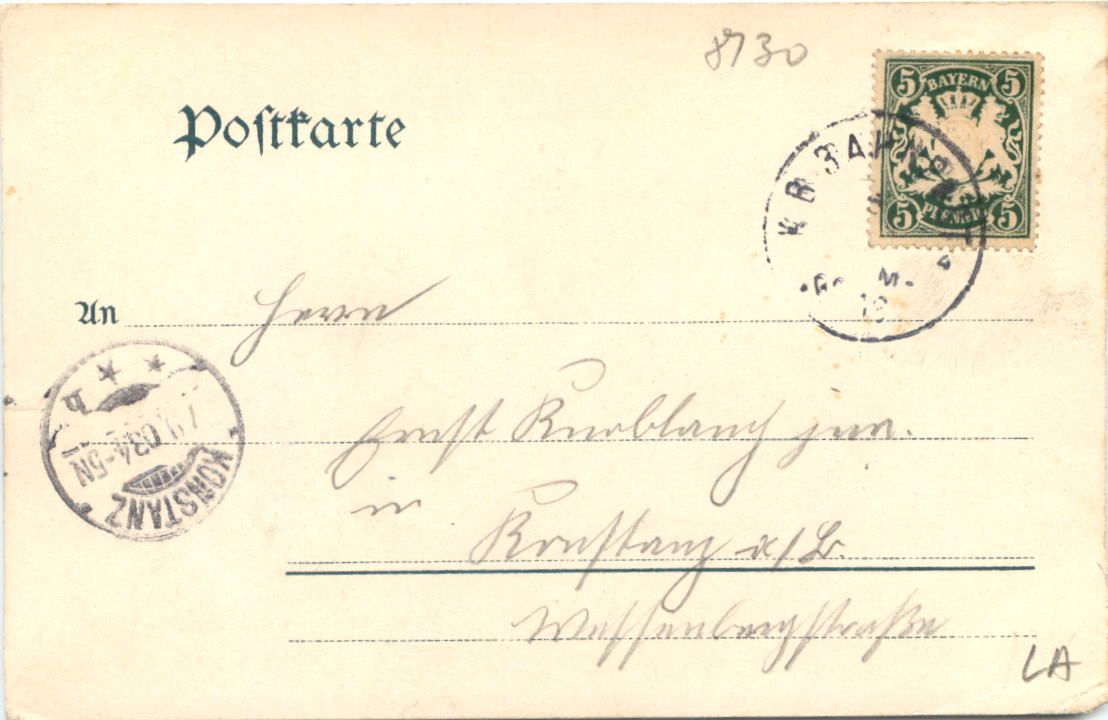 8730
5 BAYERN 5
5 PFENNIG 5
Postkarte
K. B. BAHNPOST
An Herrn
Ernst Knoblauch jun.
in
Konstanz a/B.
Wessenbergstraße
KONSTANZ
03 4-5N
LA